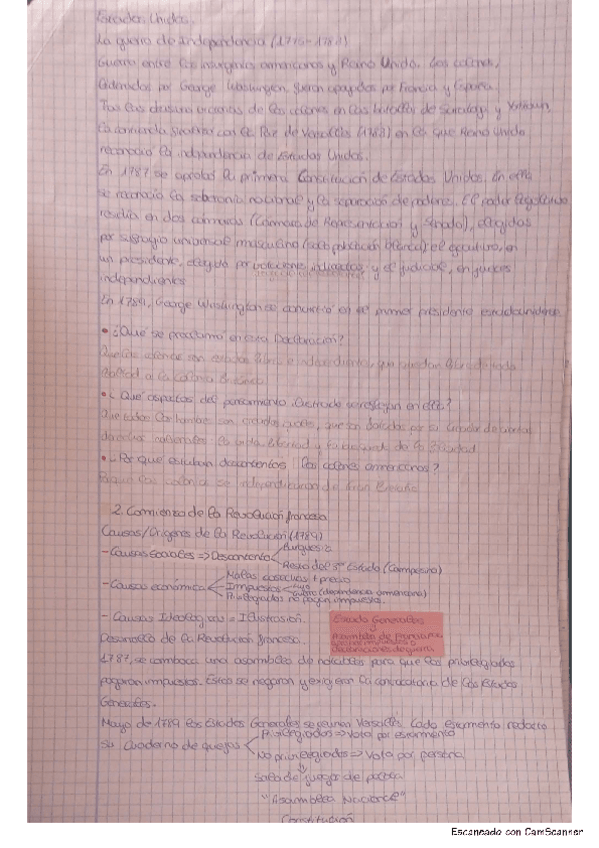 Estados Unidos.
La guerra de Independencia (1775-1783)
Guerra entre los insurgentes americanos y Reino Unido. Los colonos,
liderados por George Washington, fueron apoyados por Francia y España.
Tras las victorias de los colonos en las batallas de Saratoga y Yorktown,
la contienda finalizó con la Paz de Versalles (1783) en la que Reino Unido
reconoció la independencia de Estados Unidos.
En 1787 se aprobó la primera Constitución de Estados Unidos. En ella
se reconocía la soberanía nacional y la separación de poderes. El poder legislativo
residía en dos cámaras (Cámara de Representantes y Senado), elegidas
por sufragio universal masculino (solo población blanca); el ejecutivo, en
un presidente, elegido por y el judicial, en jueces
independientes
En 1789, George Washington se convirtió en el primer presidente estadounidense
• ¿Qué se proclama en esta Declaración?
Que las colonias son estados libres e independientes, que quedan
lealtad a la
• ¿Qué aspectos del pensamiento ilustrado se reflejan en ella?
Que todos los hombres son creados iguales, que son dotados por su Creador de ciertos
derechos la vida, libertad y la búsqueda de la felicidad
• ¿Por qué estaban descontentos los colonos americanos?
2. Comienzo de la Revolución francesa
Causas/Orígenes de la Revolución (1789)
- Causas Sociales => Descontento Burguesía
Resto del 3º Estado (Campesino)
- Causas económicas Malas cosechas ↑ precio
Impuestos (Independencia americana)
Privilegiados no pagan impuestos.
- Causas Ideológicas = Ilustración.
Estado Generales
Asamblea de
declaraciones de guerra
Desarrollo de la Revolución francesa.
1787, se convoca una asamblea de notables para que los privilegiados
pagaran impuestos. Estos se negaron y exigieron la convocatoria de los Estados
Generales.
Mayo de 1789 los Estados Generales se reúnen Versalles. Cada estamento redacta
su Cuaderno de quejas Privilegiados => Voto por estamento
No privilegiados => Voto por persona
Sala de juegos de pelota
"Asamblea Nacional"
Constitución
Escaneado con CamScanner